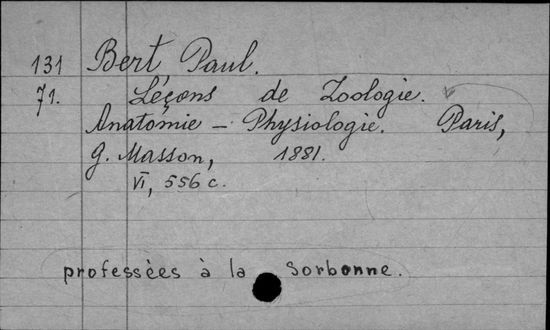 131 Bert Paul.
71. Léçons de Zoologie.
Anatomie – Physiologie. Paris,
G. Masson, 1881.
VI, 556 c.
professées à la Sorbonne.